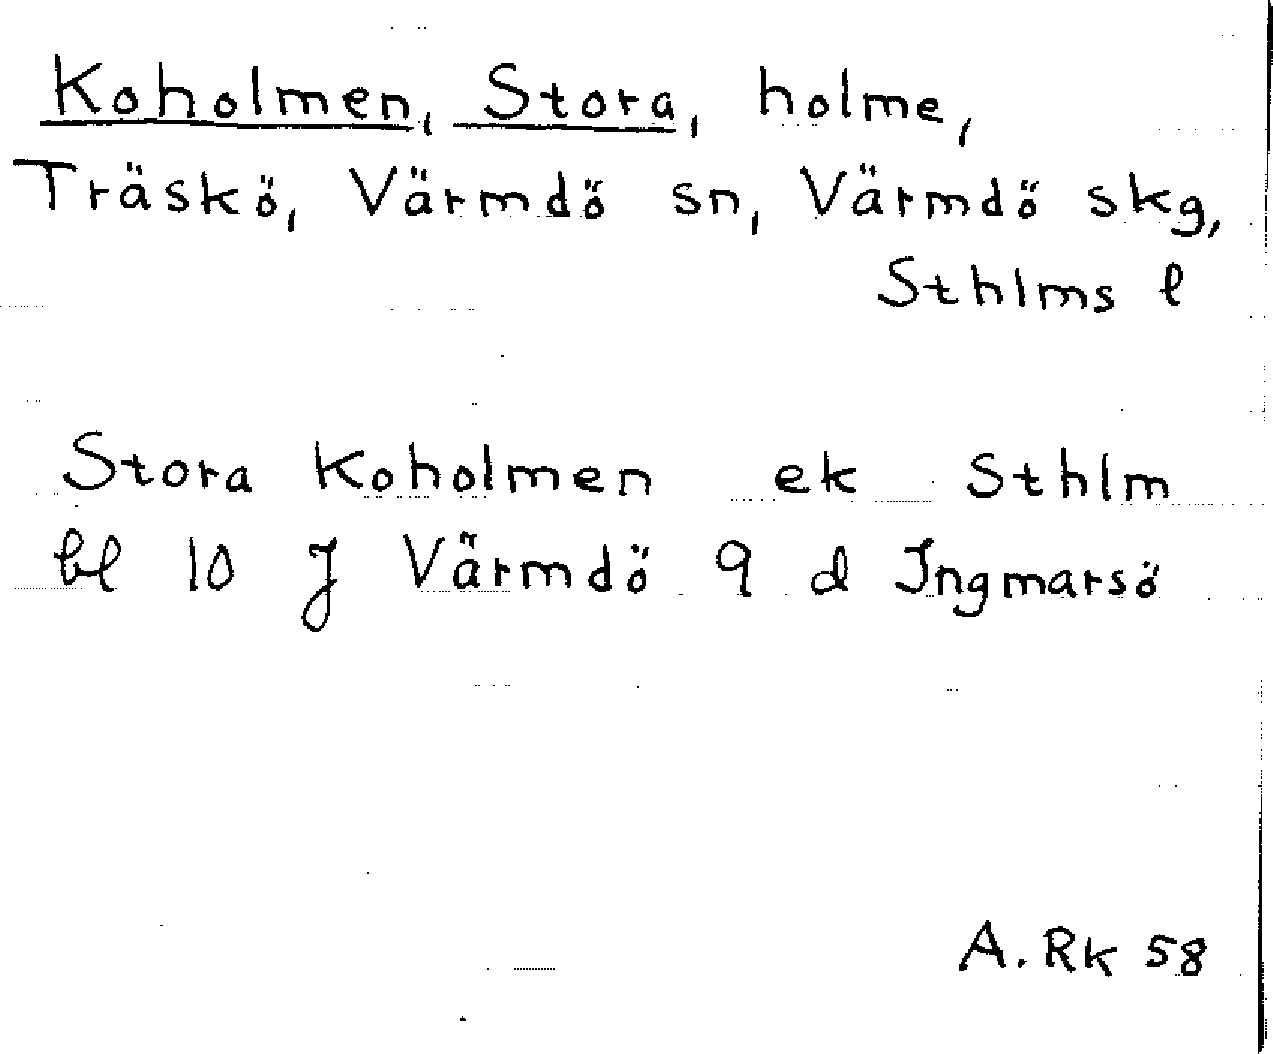 Koholmen, Stora, holme,
Träskö, Värmdö sn, Värmdö skg,
Sthlms l
Stora Koholmen ek Sthlm
bl 10 J Värmdö 9 d Ingmarsö
A. Rk 58